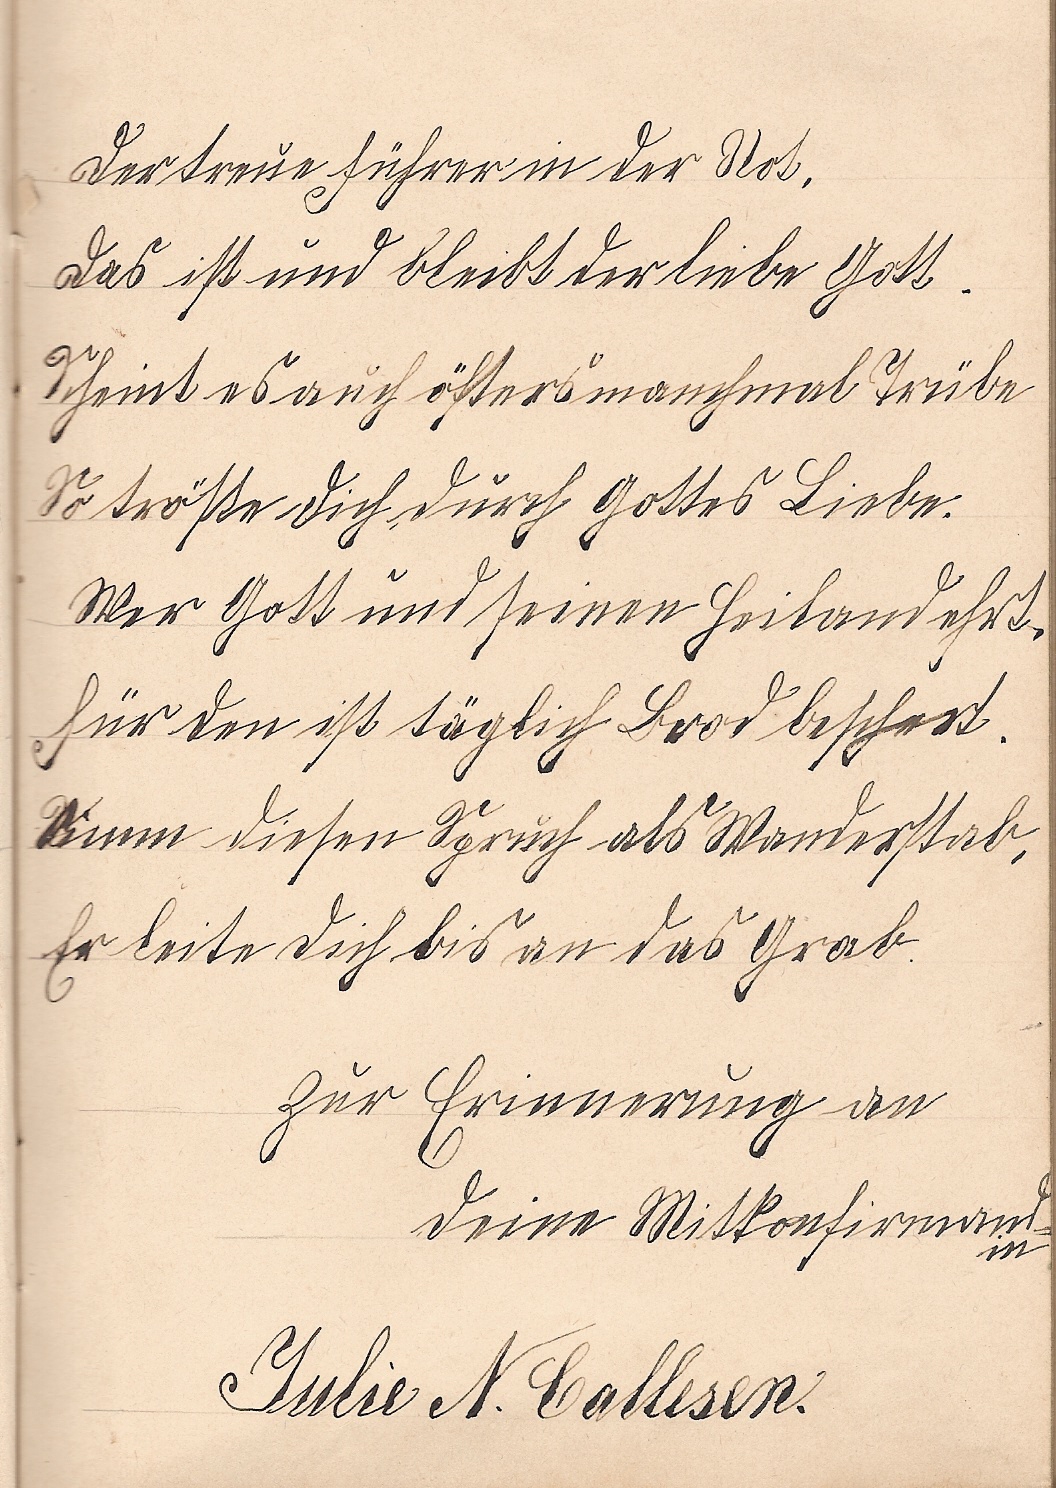 Der treue Führer in der Not,
Das ist und bleibt der liebe Gott.
Scheint es auch öfters manchmal Trübe
So tröste Dich, durch Gottes Liebe.
Wer Gott und seinen Heiland ehrt,
Für den ist täglich Brod beschert.
Nimm diesen Spruch als Wanderstab,
Er leite Dich bis an das Grab.
Zur Erinnerung an
Deine Mitkonfirmand-
in
Julie N. Callesen.